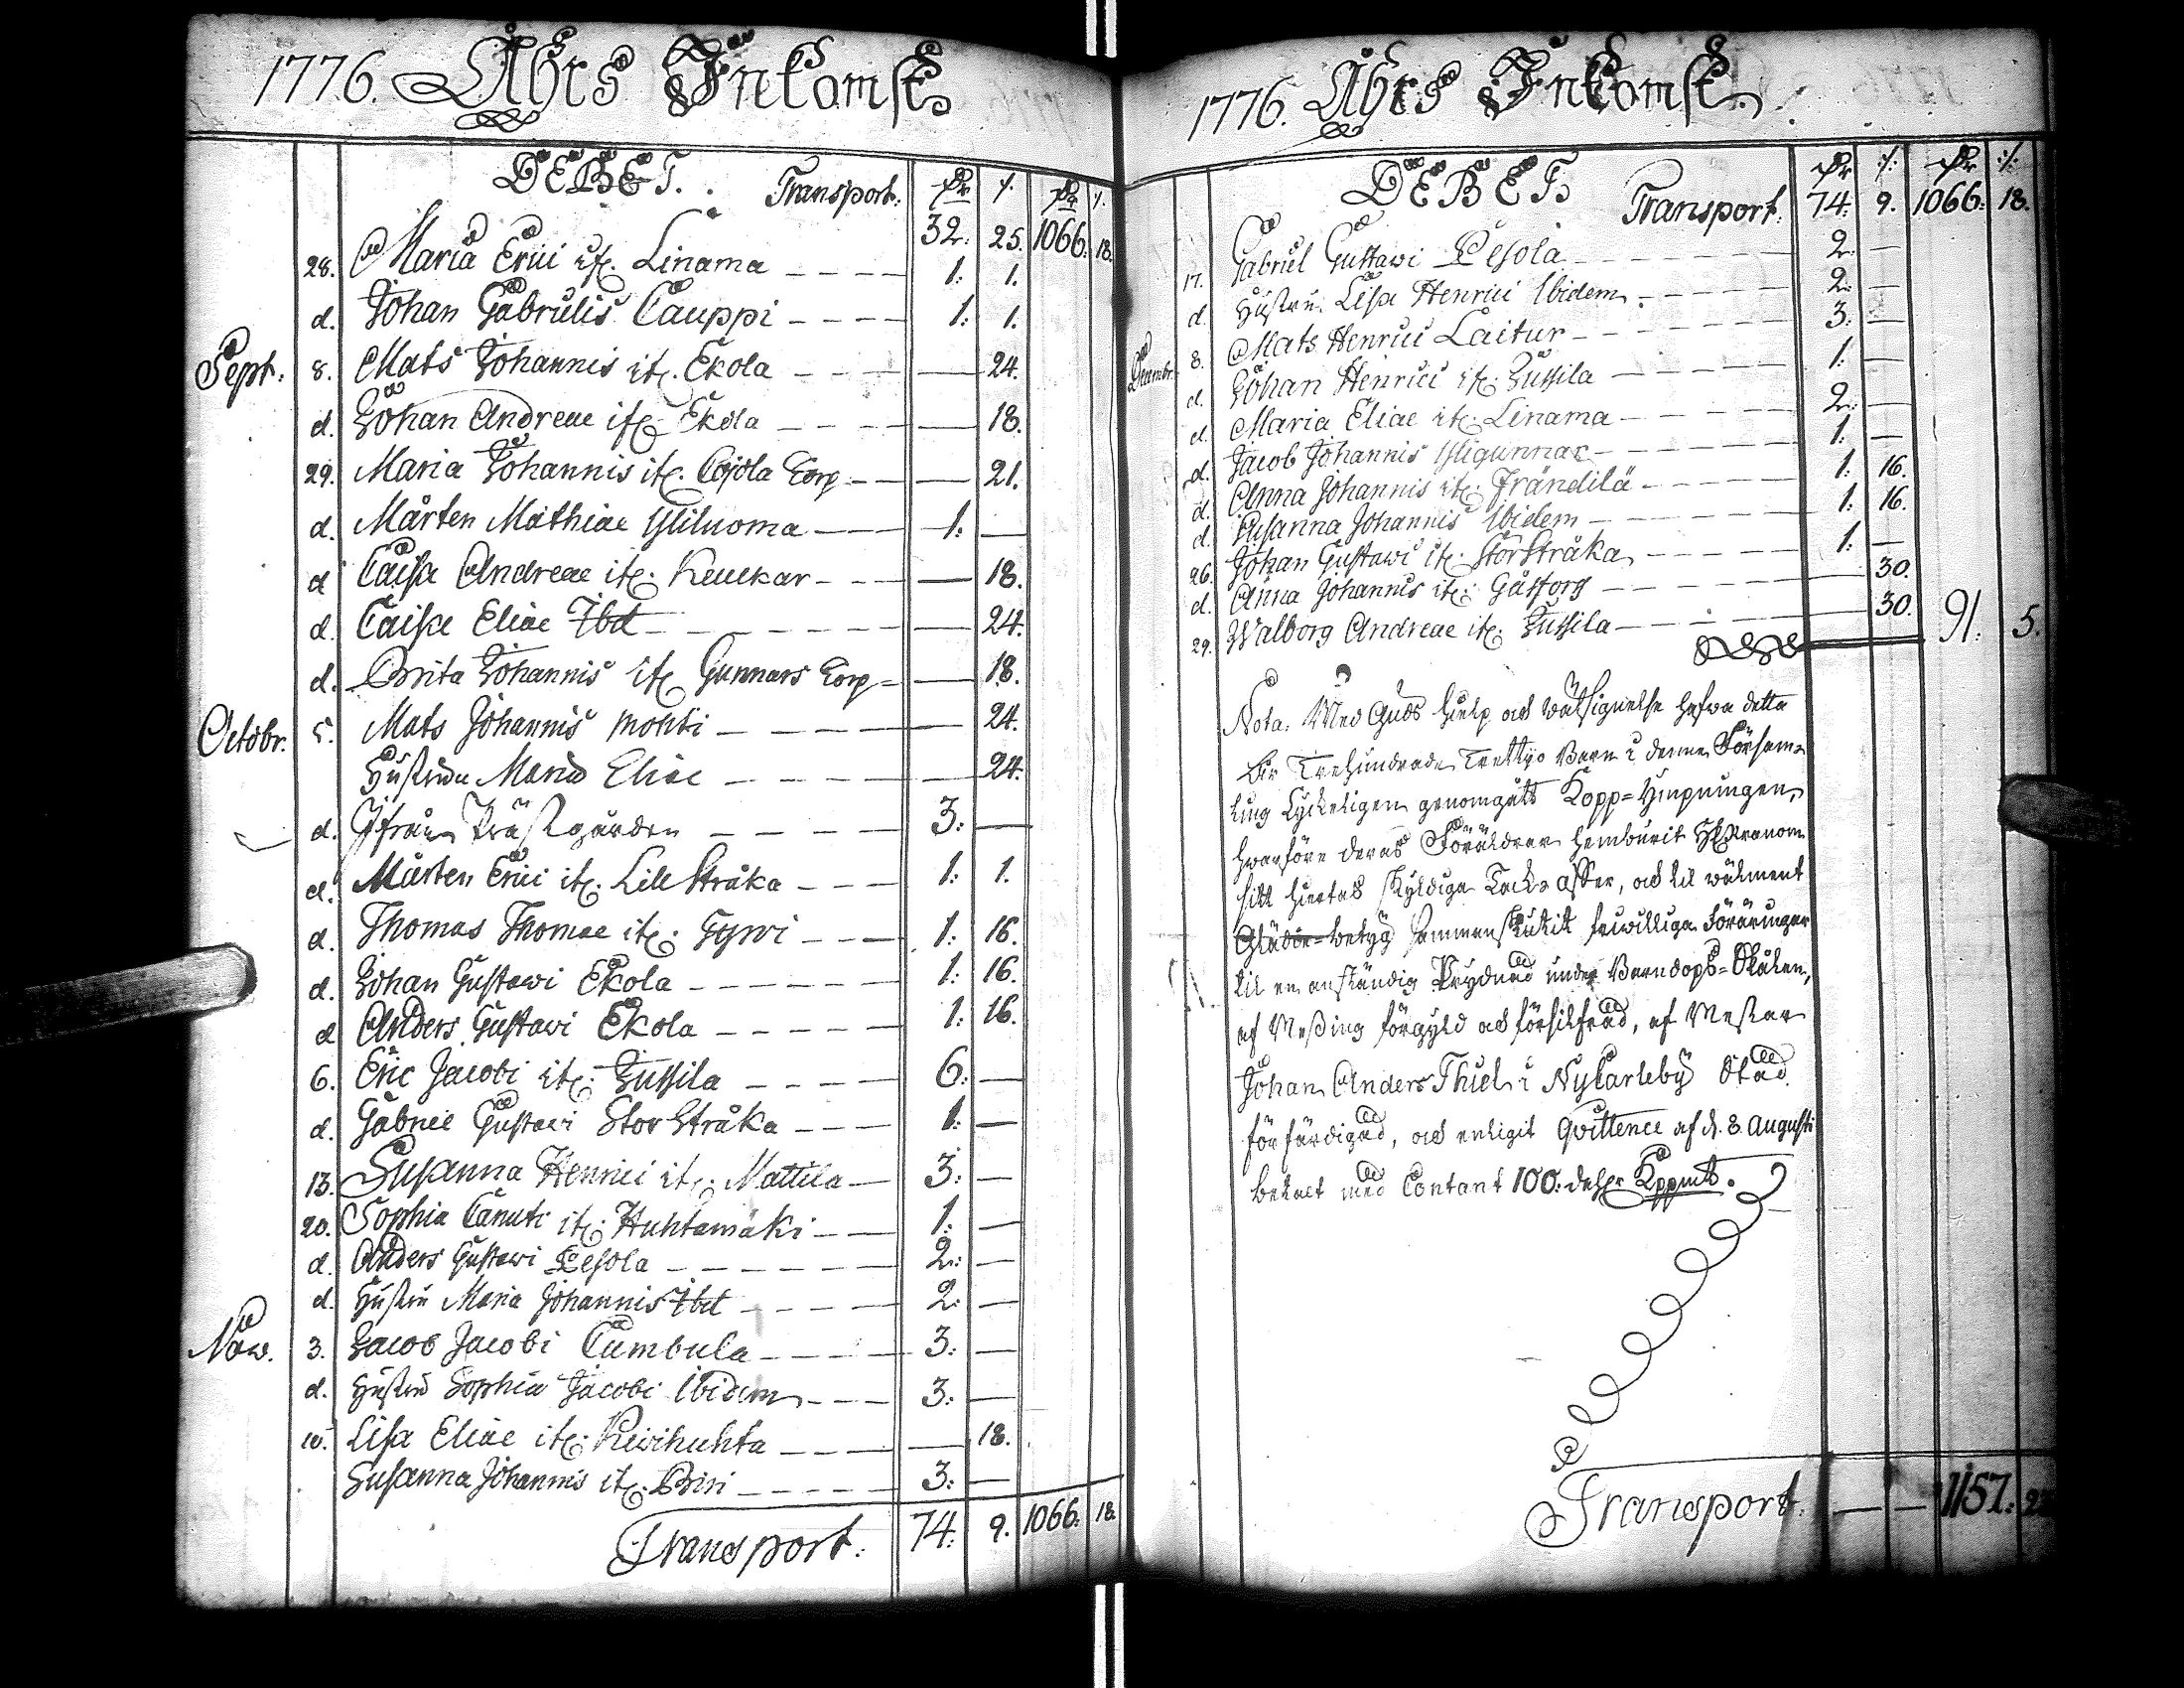 1776. Åhrs Inkomst.
DEBET. Transport. 32: 25. 1066: 18.
28. Maria Erici it: Linama 1: 1.
d. Johan Gabrielis Cauppi 1: 1.
Sept: 8. Mats Johannis it: Ekola — 24.
d. Johan Andreae it: Ekola — 18.
29. Maria Johannis it: Cojola Torp — 21.
d. Mårten Mathiae Yliluoma 1: —
d Caisa Andreae it: Keuckar — 18.
d. Caisa Eliae Ibd — 24.
d. Brita Johannis it: Gunnars Torp — 18.
Octobr. 5. Mats Johannis Mohti — 24.
Hustrun Maria Eliae — 24.
d. Ifrån Prästgården 3: —
d. Mårten Erici it: Lill Stråka 1: 1.
d. Thomas Thomae it: Tyrvi 1: 16.
d. Johan Gustavi Ekola 1: 16.
d Anders Gustavi Ekola 1: 16.
6. Eric Jacobi it: Jussila 6: —
d. Gabriel Gustavi Stor Stråka 1: —
13. Susanna Henrici it: Mattila 3: —
20. Sophia Canuti it: Huhtamäki 1: —
d. Anders Gustavi Pesola 2: —
d. Hustru Maria Johannis Ibd 2: —
Nov. 3. Jacob Jacobi Cumbula 3: —
d. Hustru Sophia Jacobi Ibidem 3: —
10. Lisa Eliae it: Keivihuhta — 18.
Susanna Johannis it: Biri 3: —
Transport: 74: 9. 1066: 18
1776. Åhrs Inkomst.
DEBET Transport: 74: 9. 1066: 18.
17. Gabriel Gustavi Pesola 2: —
d. Hustru Lisa Henrici Ibidem 2: —
Decembr. 8. Mats Henrici Laitur 3: —
d. Johan Henrici it: Jussila 1: —
d. Maria Eliae it: Linama 2: —
d. Jacob Johannis Yligunnar 1: —
d. Anna Johannis it: Frändilä 1: 16.
d. Susanna Johannis Ibidem 1: 16.
26. Johan Gustavi it: Storstråka 1: —
d. Anna Johannis it: — 30.
29. Walborg Andreae it: Jussila — 30. 91: 5.
Nota. Med Guds hielp och wälsignelse hafwa detta
åhr Trehundrade Trettijo Barn i denna Försam-
ling Lyckeligen genomgått Kopp-Ympningen,
hwarföre deras Föräldrar hemburit HErranom
sitt hiertas skyldiga Tack-offer, och til wälment
Glädie-betyg sammanskutit friwilliga Föräringar
til en anständig Prydnad under Barndops-Skålen,
af Messing förgyld och försilfrad, af Mestar
Johan Anders Thiel i NyCarleby Stad
förfärdigad, och enligit Qvittence af d. 8. Augusti
betalt med Contant 100: dahlr Kppmt.
Transport. — — 1157: